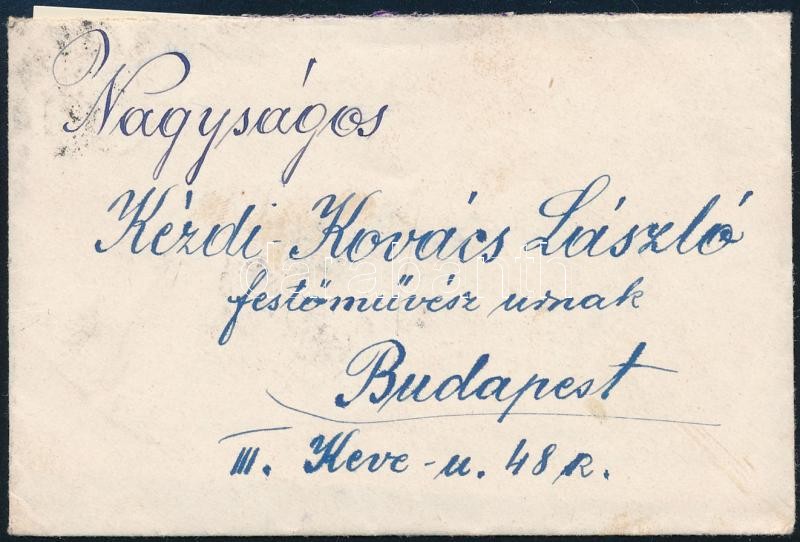 Nagyságos
Kézdi Kovács László
festőművész urnak
Budapest
III. Keve-u. 48 sz.
darabanth